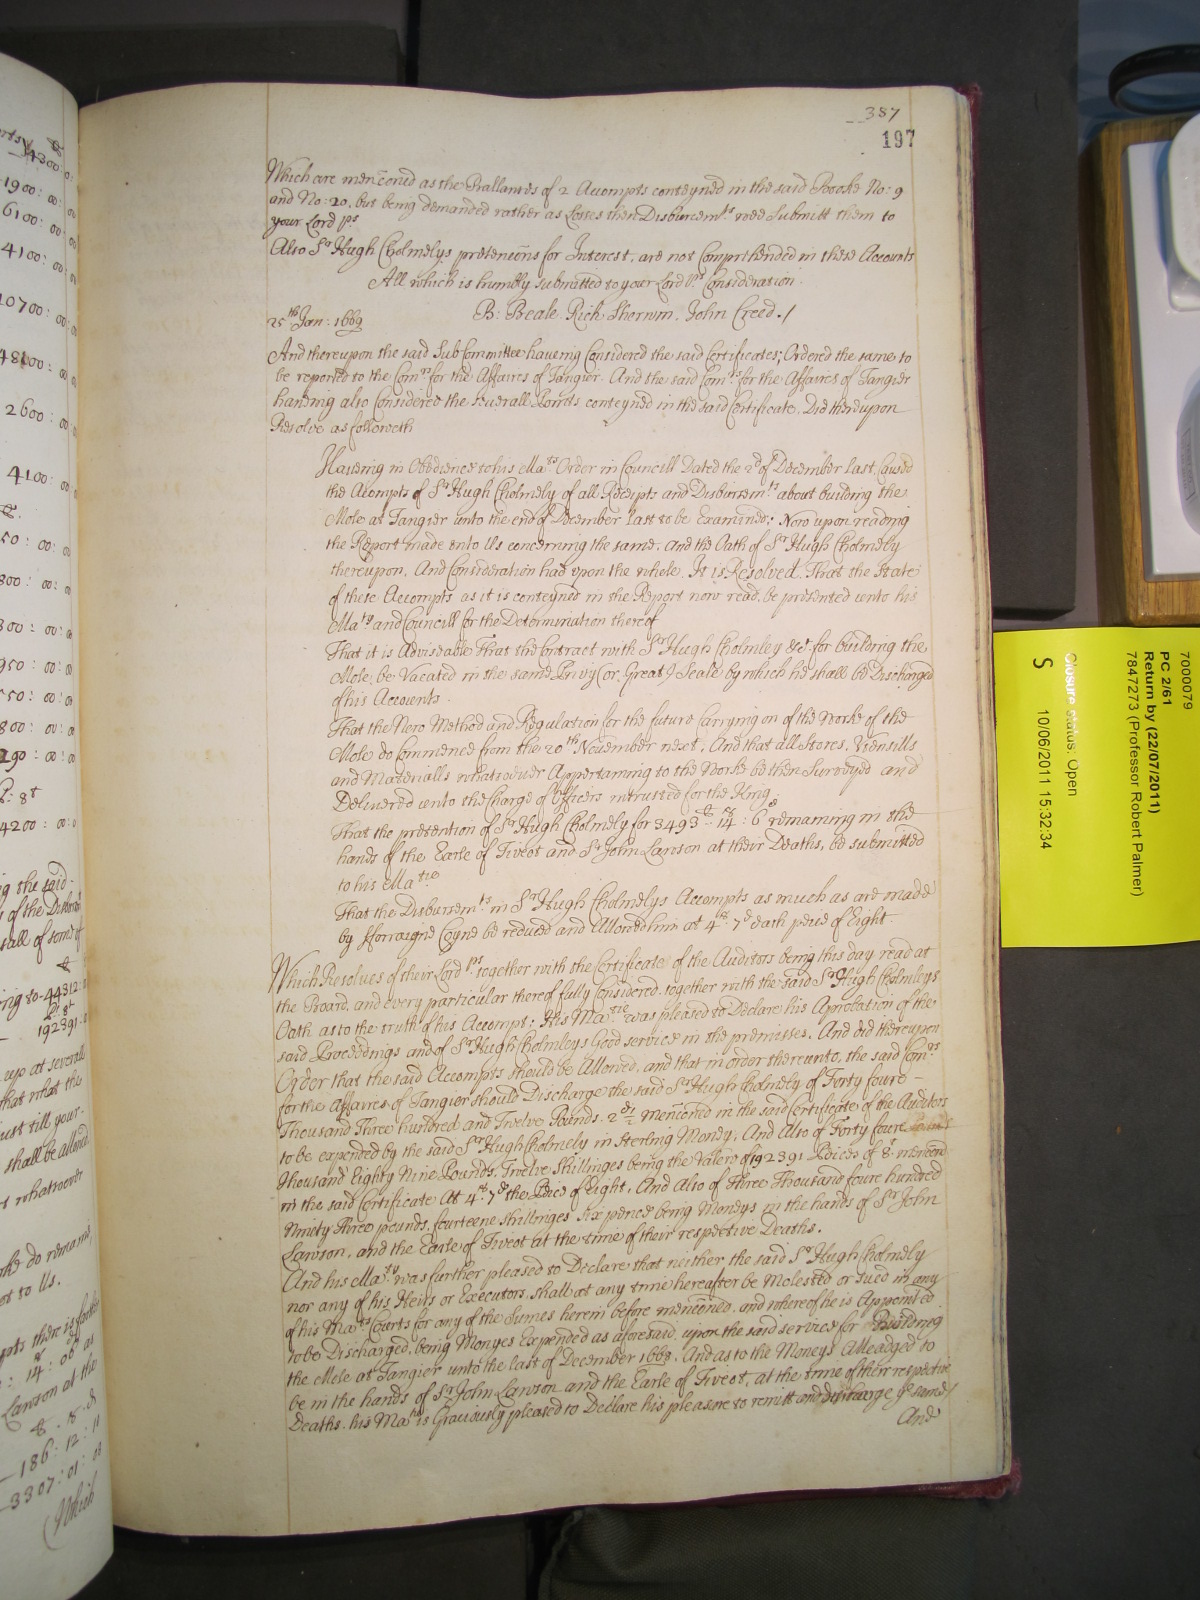 387
197
Which are menc̄oned as the Ballances of 2 Accompts conteyned in the said Booke No: 9
and No: 20, but being demanded rather as Losses then Disbursem.ts wee Submitt them to
your Lord.ps
Also Sr Hugh Cholmelys pretenc̄ons for Interest, are not Comprihended in these Accounts
All which is humbly Submitted to your Lord.ps Consideration.
25th Jan: 1669 B: Beale. Rich Sherwin. John Creed./
And thereupon the said Sub Committee haueing Considered the said Certificates; Ordered the same to
be reported to the Com.rs for the Affaires of Tangier. And the said Com.rs for the Affaires of Tangier
haueing also Considered the seuerall Points conteyned in the said Certificate, Did thereupon
Resolve as followeth
Haueing in Obedience to his Ma.ts Order in Councill Dated the 2d of December last, Caused
the Acompts of Sr Hugh Cholmely of all Receipts and Disbursem.ts about building the
Mole at Tangier unto the end of December last to be Examined; Now upon reading
the Report made unto Us concerning the same, and the Oath of Sr Hugh Cholmely
thereupon, And Consideration had upon the whole. It is Resolved. That the State
of these Accompts as it is conteyned in the Report now read, be presented unto his
Ma.ty and Councill for the Determination thereof
That it is Adviseable That the Contract with Sr Hugh Cholmley &c. for building the
Mole, be Vacated in the same Privy (or Great) Seale by which he shall be Discharged
of his Accounts
That the New Method and Regulation for the future Carrying on of the Worke of the
Mole do Commence from the 20th November next, And that all Stores, Utensills
and Materialls whatsoever Appertaining to the Worke be then Surveyed and
Delivered unto the Charge of Officers intrusted for the King.
That the pretention of Sr Hugh Cholmely for 3493l: 14s: 6d remaining in the
hands of the Earle of Tiveot and Sr John Lawson at their Deaths, be submitted
to his Ma.tie
That the Disbursem.ts in Sr Hugh Cholmelys Accompts as much as are made
by fforraigne Coyne be reduced and Allowed him at 4s. 7d each peice of Eight.
Which Resolves of their Lord.ps together with the Certificate of the Auditors being this day read at
the Board, and every particular thereof fully Considered, together with the said Sr Hugh Cholmleys
Oath as to the truth of his Accompt; His Ma.tie was pleased to Declare his Aprobation of the
said Proceedings and of Sr Hugh Cholmleys Good service in the premisses. And did thereupon
Order that the said Accompts should be Allowed, and that in order thereunto, the said Com.rs
for the Affaires of Tangier should Discharge the said Sr Hugh Cholmely of Forty foure
Thousand Three hundred and Twelve Pounds, 2d ½ menc̄oned in the said Certificate of the Auditors
to be expended by the said Sr Hugh Cholmely in Sterling Money, And Also of Forty foure
thousand Eighty Nine Pounds, Twelve Shillinges being the Valew of 192391 Peices of 8. menc̄oned
in the said Certificate At 4s. 7d the Peice of Eight, And Also of Three Thousand foure hundred
Ninty Three pounds, fourteene shillinges Six pence being Moneys in the hands of Sr John
Lawson, and the Earle of Tiveot at the time of their respective Deaths.
And his Ma.ty was further pleased to Declare that neither the said Sr Hugh Cholmely
nor any of his Heirs or Executors, shall at any time hereafter be Molested or Sued in any
of his Ma.ts Courts for any of the Sumes herein before menc̄oned, and whereof he is Appointed
to be Discharged, being Monyes Expended as aforesaid, upon the said service for Building
the Mole at Tangier unto the last of December 1668. And as to the Moneys Alleadged to
be in the hands of Sr John Lawson and the Earle of Tiveot, at the time of their respective
Deaths, his Ma.tie is Graciously pleased to Declare his pleasure to remitt and discharge ye same/
And
7000079
PC 2/61
Return by (22/07/2011)
7847273 (Professor Robert Palmer)
Closure status: Open
S 10/06/2011 15:32:34
4300
1900: 00
6100: 00
4100: 00
10700: 00: 00
48100: 00
2600: 00
4100: 00
50: 00: 00
800: 00: 00
300: 00: 00
950: 00: 00
550: 00: 00
800: 00: 00
190: 00: 00
4200: 00:
g the said
of the Disburs
all of some of
ing to 44312:
192391
up at severall
that what this
just till your
shall be allowed
whatsoever
do remaine,
to Us.
14: 06 as
Lawson at the
186: 12: 11
3307: 01: 08
(Which